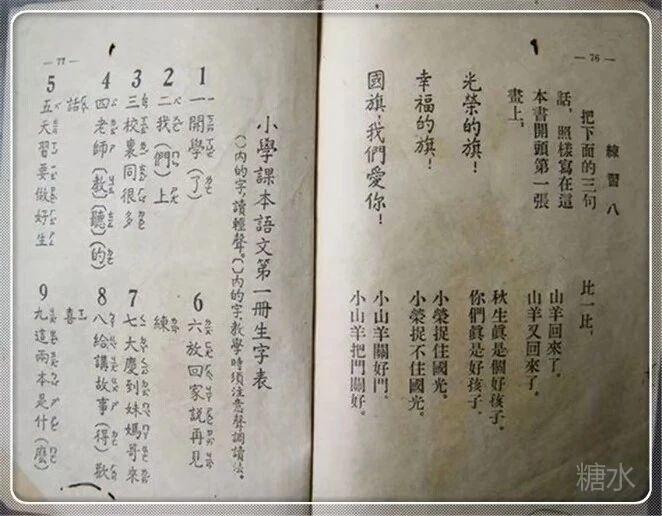 — 76 —
練習八
把下面的三句
話，照樣寫在這
本書開頭第一張
畫上。
光榮的旗！
幸福的旗！
國旗！我們愛你！
比一比，
山羊回來了。
山羊又回來了。
秋生眞是個好孩子。
你們眞是好孩子。
小榮捉住國光。
小榮捉不住國光。
小山羊關好門。
小山羊把門關好。
— 77 —
小學課本語文第一冊生字表
( )內的字，讀輕聲。〔 〕內的字，教學時須注意聲調讀法。
1 一開學(了)
2 二我(們)上
3 三校裏同很多
4 四老師(教)(聽)(的)
話
5 五天習要做好生
6 六放回家說再見
練
7 七大慶到妹媽哥來
8 八給講故事(得)歡
喜
9 九這兩本是什(麼)
糖水